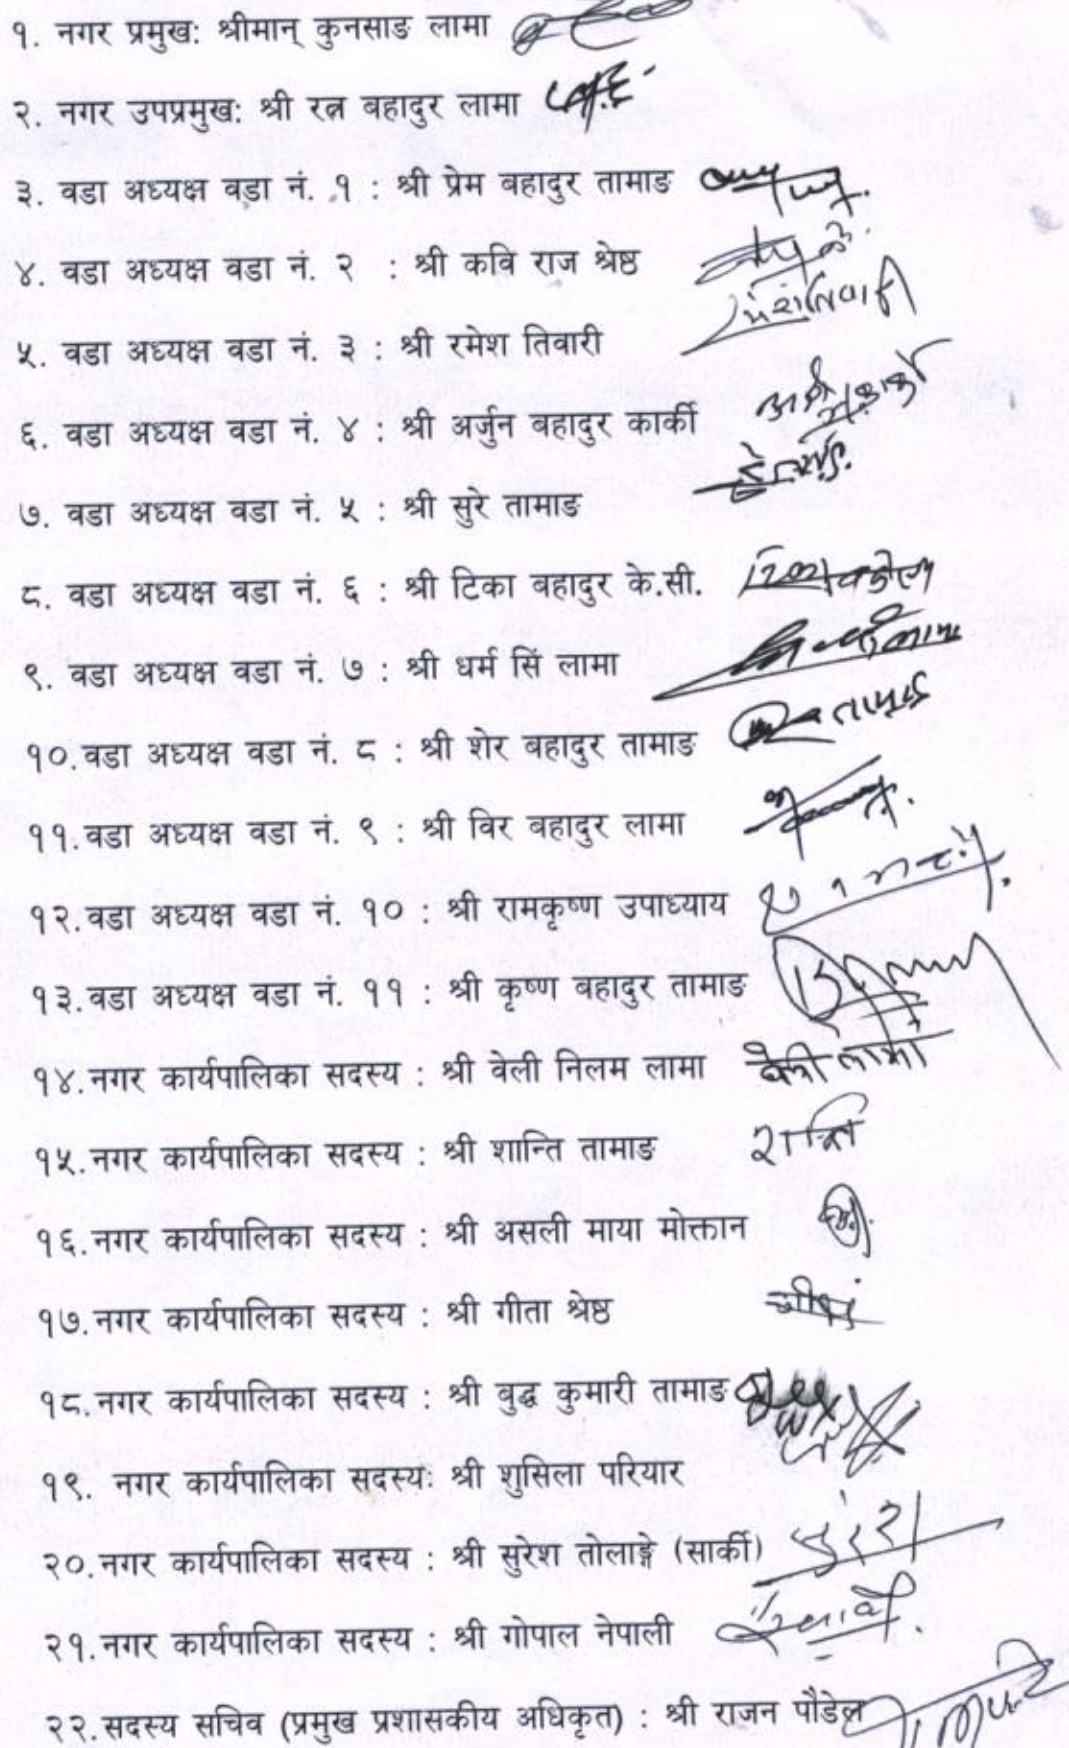 १. नगर प्रमुख: श्रीमान् कुनसाङ लामा
२. नगर उपप्रमुख: श्री रत्न बहादुर लामा
३. वडा अध्यक्ष वडा नं. १ : श्री प्रेम बहादुर तामाङ
४. वडा अध्यक्ष वडा नं. २ : श्री कवि राज श्रेष्ठ
५. वडा अध्यक्ष वडा नं. ३ : श्री रमेश तिवारी
६. वडा अध्यक्ष वडा नं. ४ : श्री अर्जुन बहादुर कार्की
७. वडा अध्यक्ष वडा नं. ५ : श्री सुरे तामाङ
८. वडा अध्यक्ष वडा नं. ६ : श्री टिका बहादुर के.सी.
९. वडा अध्यक्ष वडा नं. ७ : श्री धर्म सिं लामा
१०. वडा अध्यक्ष वडा नं. ८ : श्री शेर बहादुर तामाङ
११. वडा अध्यक्ष वडा नं. ९ : श्री विर बहादुर लामा
१२. वडा अध्यक्ष वडा नं. १० : श्री रामकृष्ण उपाध्याय
१३. वडा अध्यक्ष वडा नं. ११ : श्री कृष्ण बहादुर तामाङ
१४. नगर कार्यपालिका सदस्य : श्री वेली निलम लामा
१५. नगर कार्यपालिका सदस्य : श्री शान्ति तामाङ शान्ति
१६. नगर कार्यपालिका सदस्य : श्री असली माया मोक्तान
१७. नगर कार्यपालिका सदस्य : श्री गीता श्रेष्ठ
१८. नगर कार्यपालिका सदस्य : श्री बुद्ध कुमारी तामाङ
१९. नगर कार्यपालिका सदस्य: श्री शुसिला परियार
२०. नगर कार्यपालिका सदस्य : श्री सुरेश तोलाङ्गे (सार्की)
२१. नगर कार्यपालिका सदस्य : श्री गोपाल नेपाली
२२. सदस्य सचिव (प्रमुख प्रशासकीय अधिकृत) : श्री राजन पौडेल